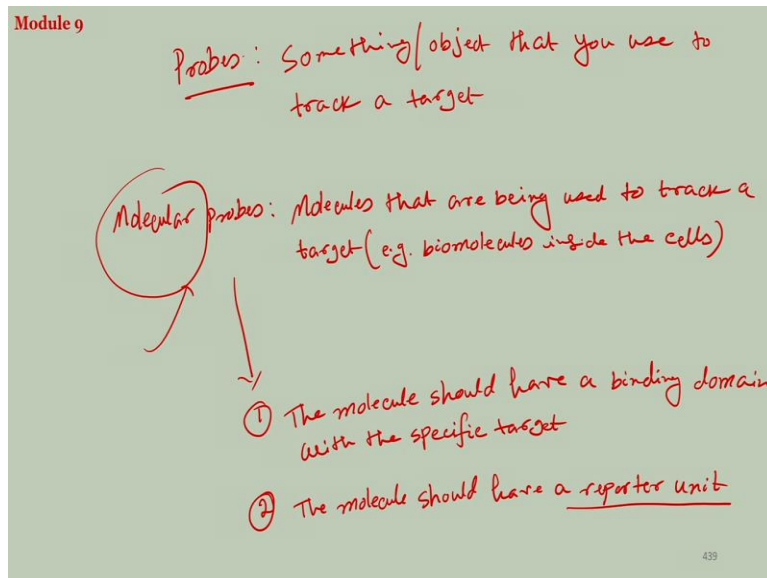 Module 9
Probes: Something/object that you use to
track a target
Molecular probes: Molecules that are being used to track a
target (e.g. biomolecules inside the cells)
① The molecule should have a binding domain
with the specific target
② The molecule should have a reporter unit
439